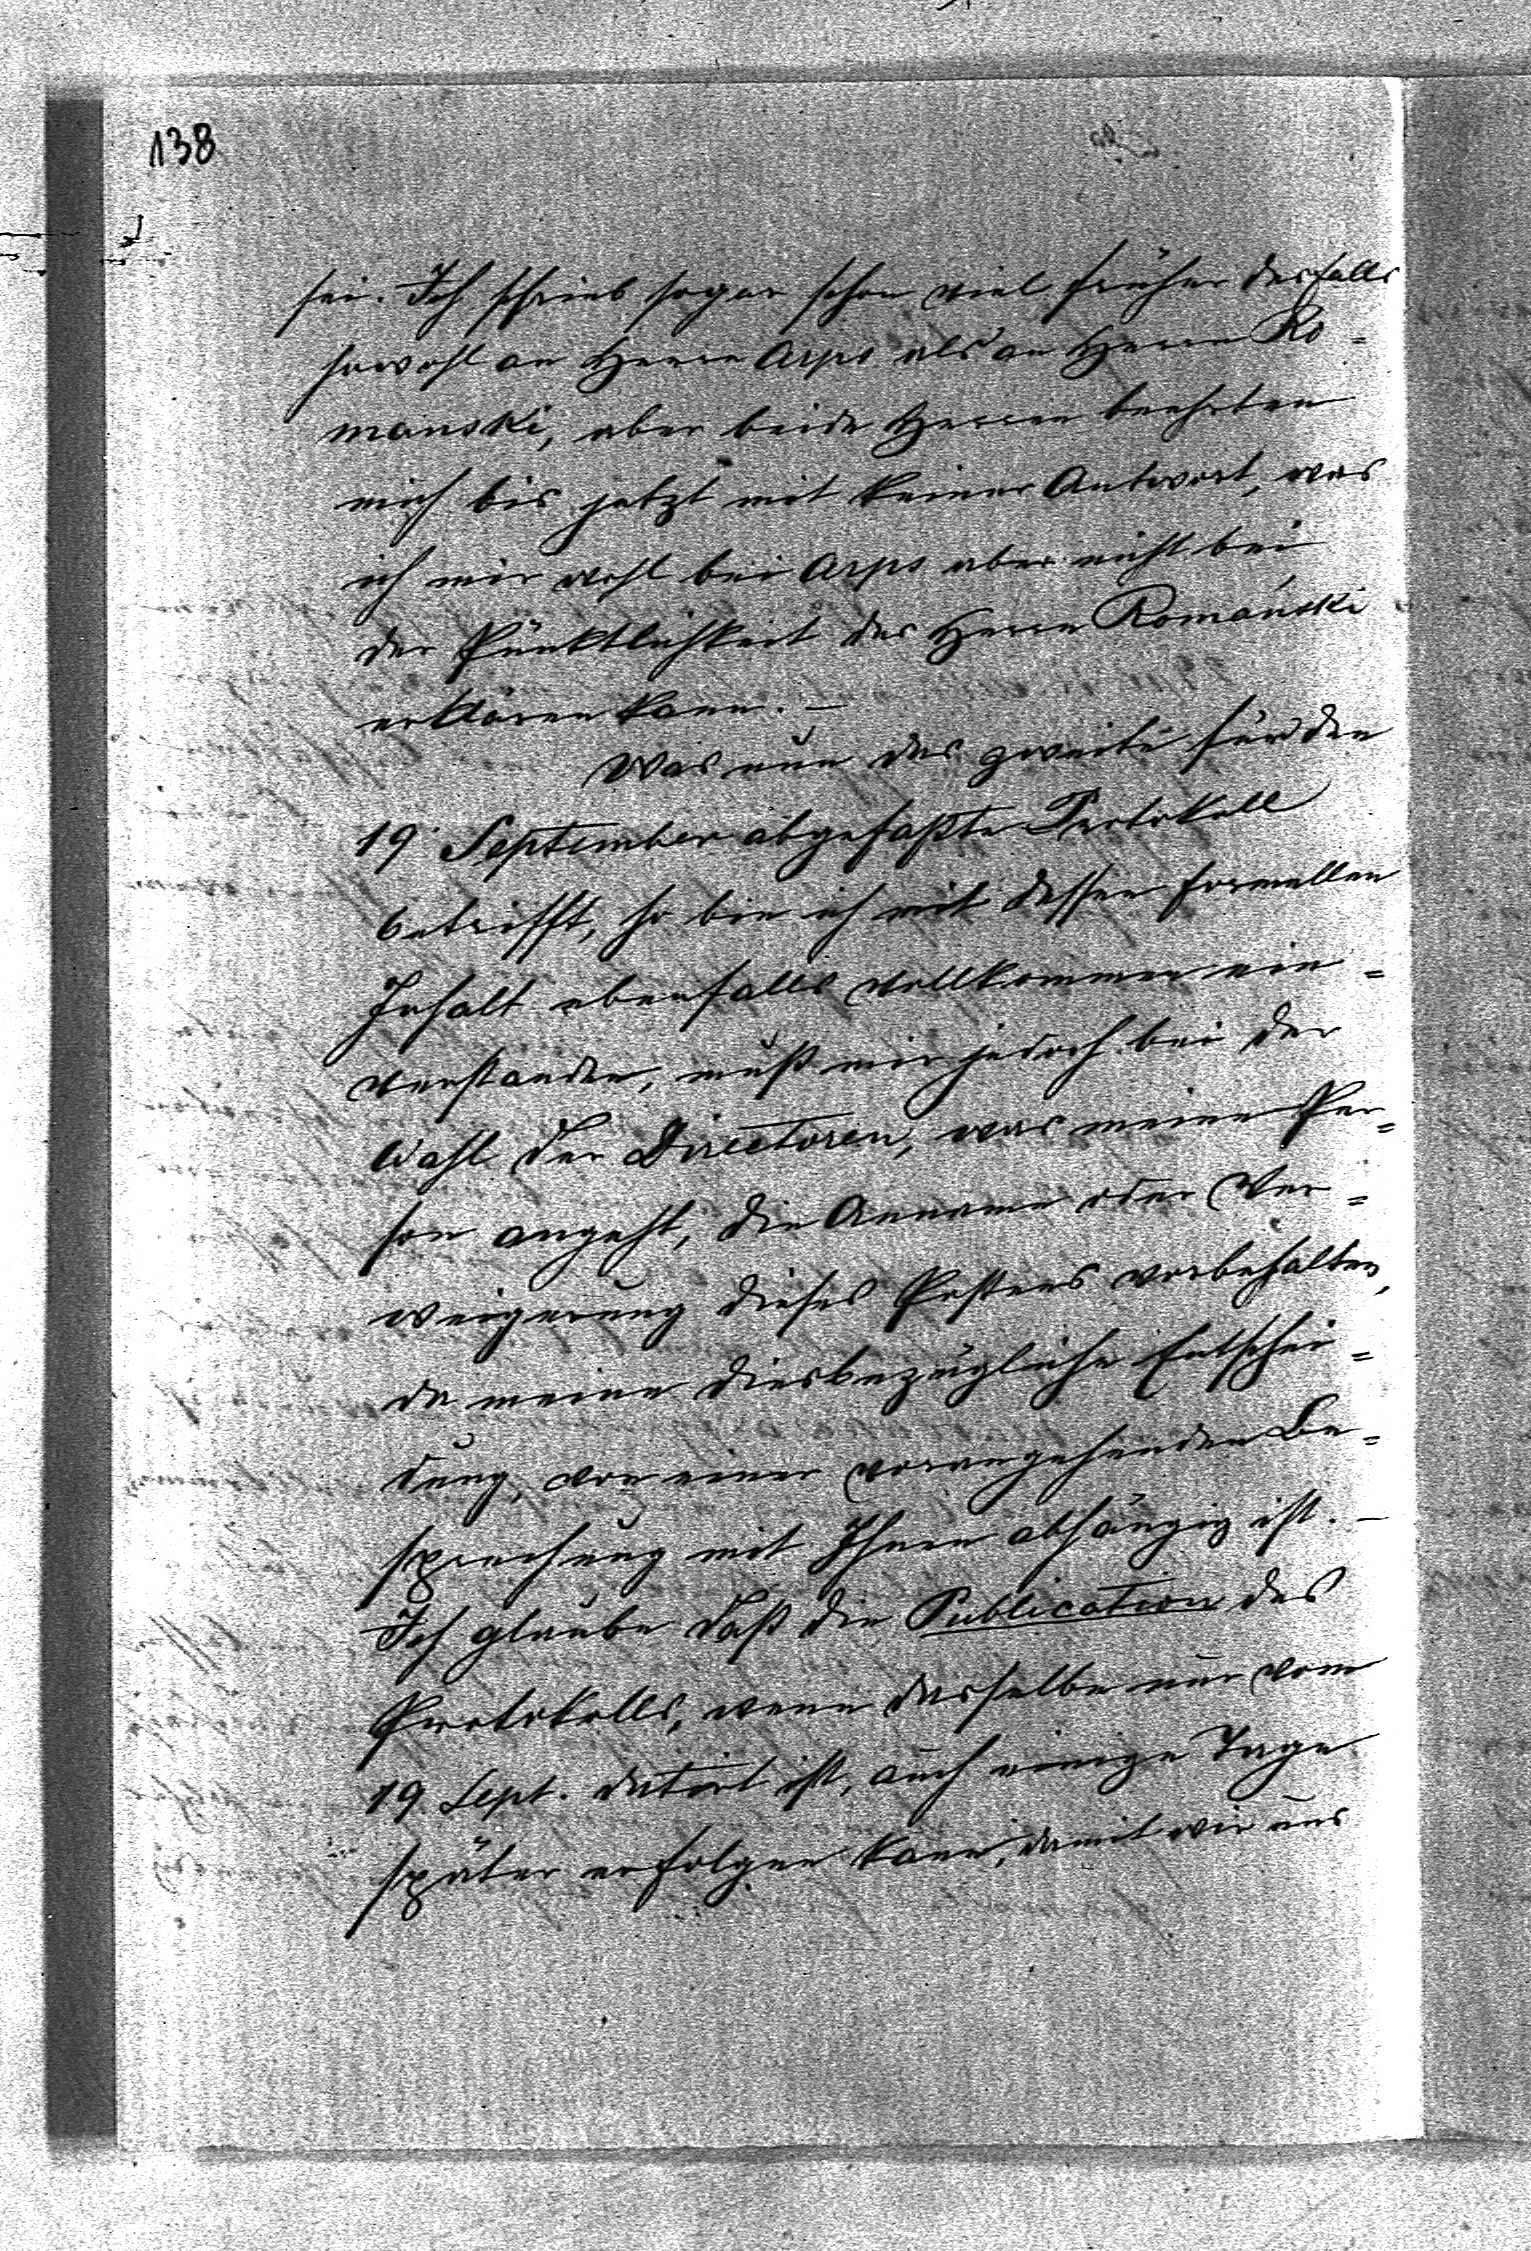 138
sei. Ich schrieb sogar schon viel früher desfalls
sowohl an Herrn Arps als an Herrn Ro=
manski, aber beide Herren beehrten
mich bis jetzt mit keiner Antwort, was
ich mir wohl bei Arps aber nicht bei
der Pünktlichkeit des Herrn Romański
erklären kann. –
Was nun das zweite für den
19 September abgefaßte Protokoll
betrifft, so bin ich mit dessen formellen
Inhalt ebenfalls vollkommen ein=
verstanden, muß mir jedoch bei der
Wahl der Directoren, was meine Per=
son angeht, die Anname oder Ver=
weigerung dieses Postens vorbehalten,
da meine diesbezügliche Entschei=
dung, von einer vorangehenden Be=
sprechung mit Ihnen abhängig ist. –
Ich glaube daß die Publication des
Protokolls, wenn dasselbe nur vom
19 Sept. datirt ist, auch einige Tage
später erfolgen kann, damit wir uns